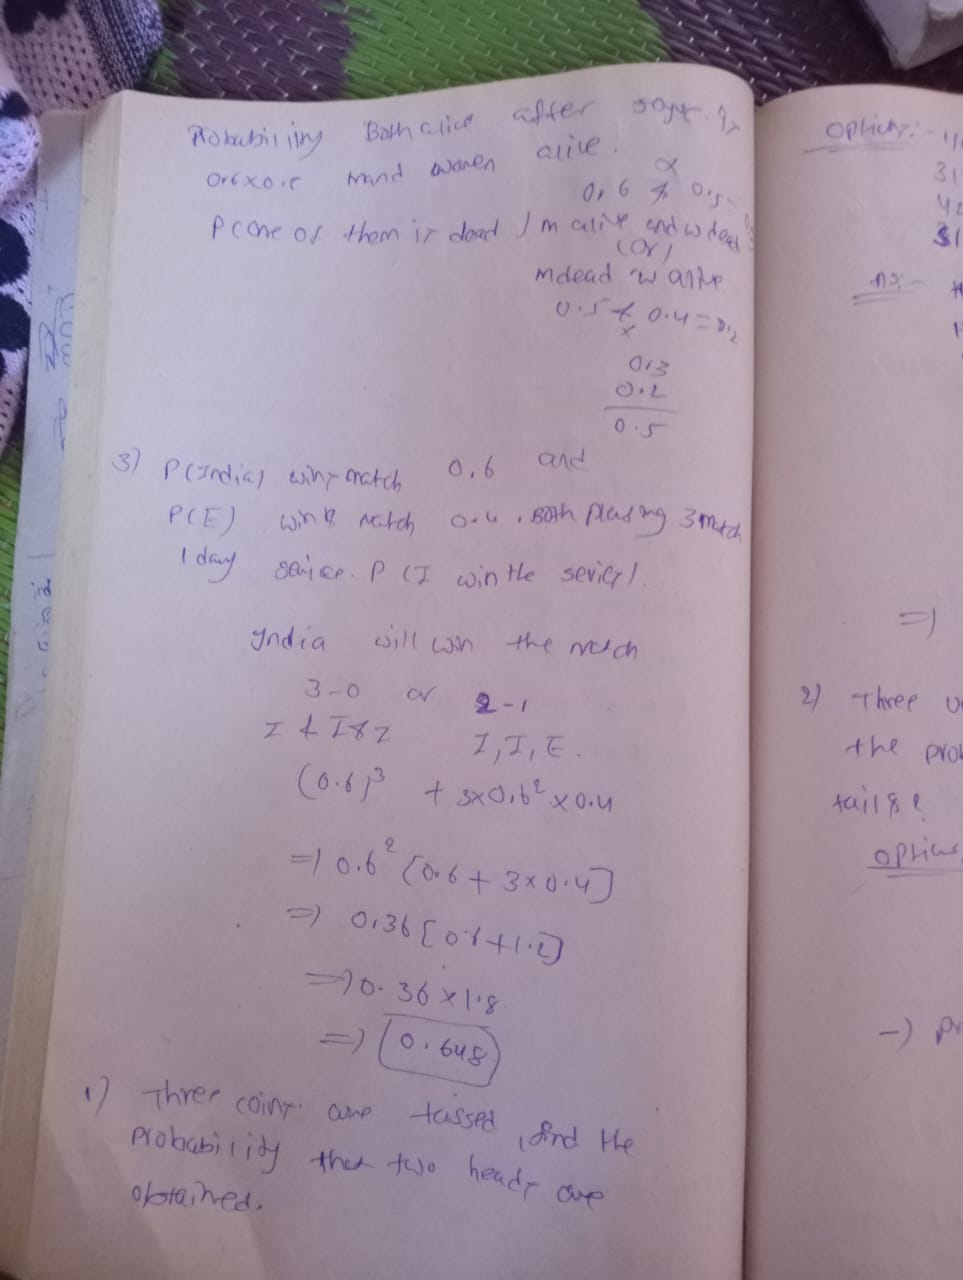 Probability Both alive after 50yr. is
0.6x0.5 M and women alive.
0.6 x 0.5 =
P(one of them is dead) m alive and w dead
(or)
m dead w alive
0.5 x 0.4 = 0.2
0.3
0.2
0.5
3) P(India) wins match 0.6 and
P(E) wins match 0.4. Both playing 3 match
1 day P(I win the series).
India will win the match
3-0 or 2-1
I & I & I I, I, E.
(0.6)³ + 3x0.6² x 0.4
=) 0.6² [0.6 + 3x0.4]
=) 0.36 [0.6+1.2]
=) 0.36 x 1.8
=) 0.648
1) Three coins are tassed, find the
Probability that two heads are
obtained.
Option:-
31
42
31
Ans:-
=)
2) Three
the
tails?
Option
-) Pr